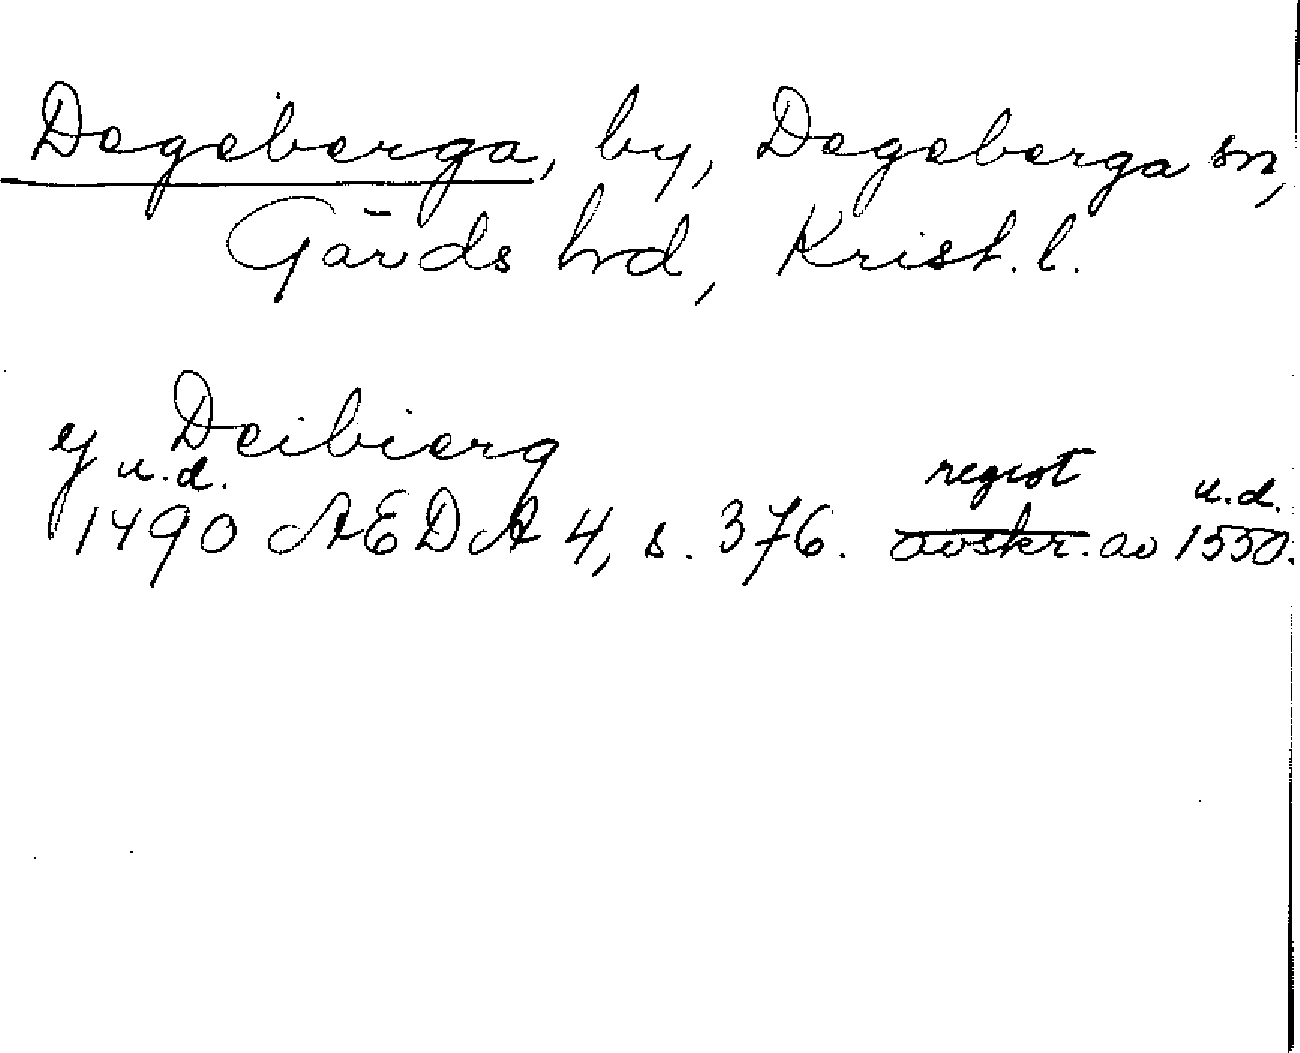 Degeberga, by, Degeberga sn,
Gärds hd, Krist. l.
y Deibierg
u.d.
1490 AEDA 4, s. 376. avskr. av 1550.
regist u.d.